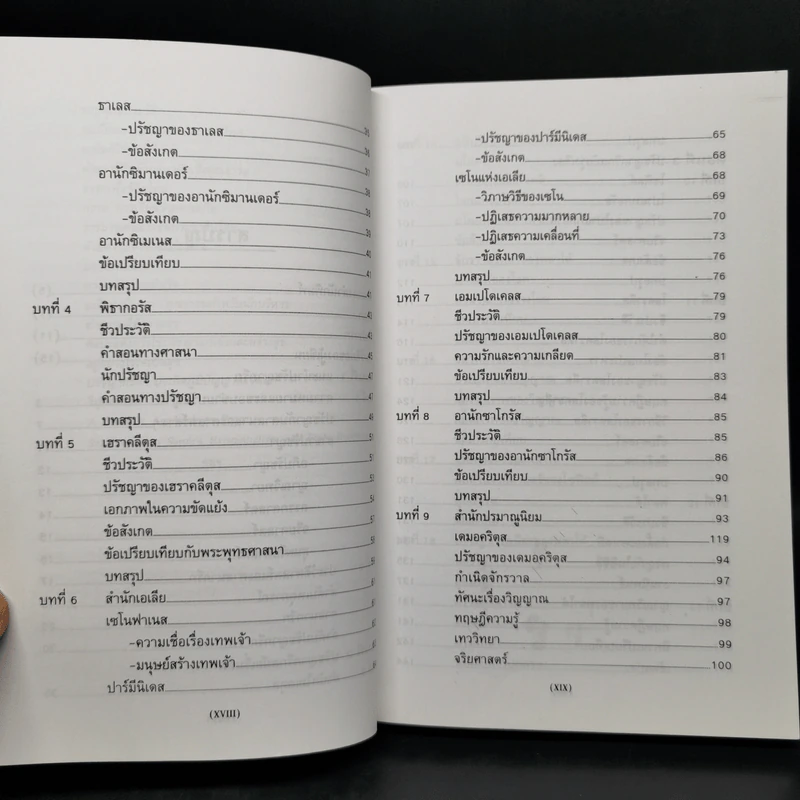 ธาเลส 35
-ปรัชญาของธาเลส 35
-ข้อสังเกต 36
อานักซิมานเดอร์ 37
-ปรัชญาของอานักซิมานเดอร์ 38
-ข้อสังเกต
อานักซิเมเนส 40
ข้อเปรียบเทียบ 41
บทสรุป 41
บทที่ 4 พิธากอรัส
ชีวประวัติ
คำสอนทางศาสนา 45
นักปรัชญา 47
คำสอนทางปรัชญา
บทสรุป
บทที่ 5 เฮราคลีตุส
ชีวประวัติ
ปรัชญาของเฮราคลีตุส
เอกภาพในความขัดแย้ง
ข้อสังเกต
ข้อเปรียบเทียบกับพระพุทธศาสนา
บทสรุป
บทที่ 6 สำนักเอเลีย
เซโนฟาเนส
-ความเชื่อเรื่องเทพเจ้า
-มนุษย์สร้างเทพเจ้า
ปาร์มีนิเดส
(XVIII)
-ปรัชญาของปาร์มีนิเดส 65
-ข้อสังเกต 68
เซโนแห่งเอเลีย 68
-วิภาษวิธีของเซโน 69
-ปฏิเสธความมากหลาย 70
-ปฏิเสธความเคลื่อนที่ 73
-ข้อสังเกต 76
บทสรุป 76
บทที่ 7 เอมเปโดเคลส 79
ชีวประวัติ 79
ปรัชญาของเอมเปโดเคลส 80
ความรักและความเกลียด 81
ข้อเปรียบเทียบ 83
บทสรุป 84
บทที่ 8 อานักซาโกรัส 85
ชีวประวัติ 85
ปรัชญาของอานักซาโกรัส 86
ข้อเปรียบเทียบ 90
บทสรุป 91
บทที่ 9 สำนักปรมาณูนิยม 93
เดมอคริตุส 119
ปรัชญาของเดมอคริตุส 94
กำเนิดจักรวาล 97
ทัศนะเรื่องวิญญาณ 97
ทฤษฎีความรู้ 98
เทววิทยา 99
จริยศาสตร์ 100
(XIX)